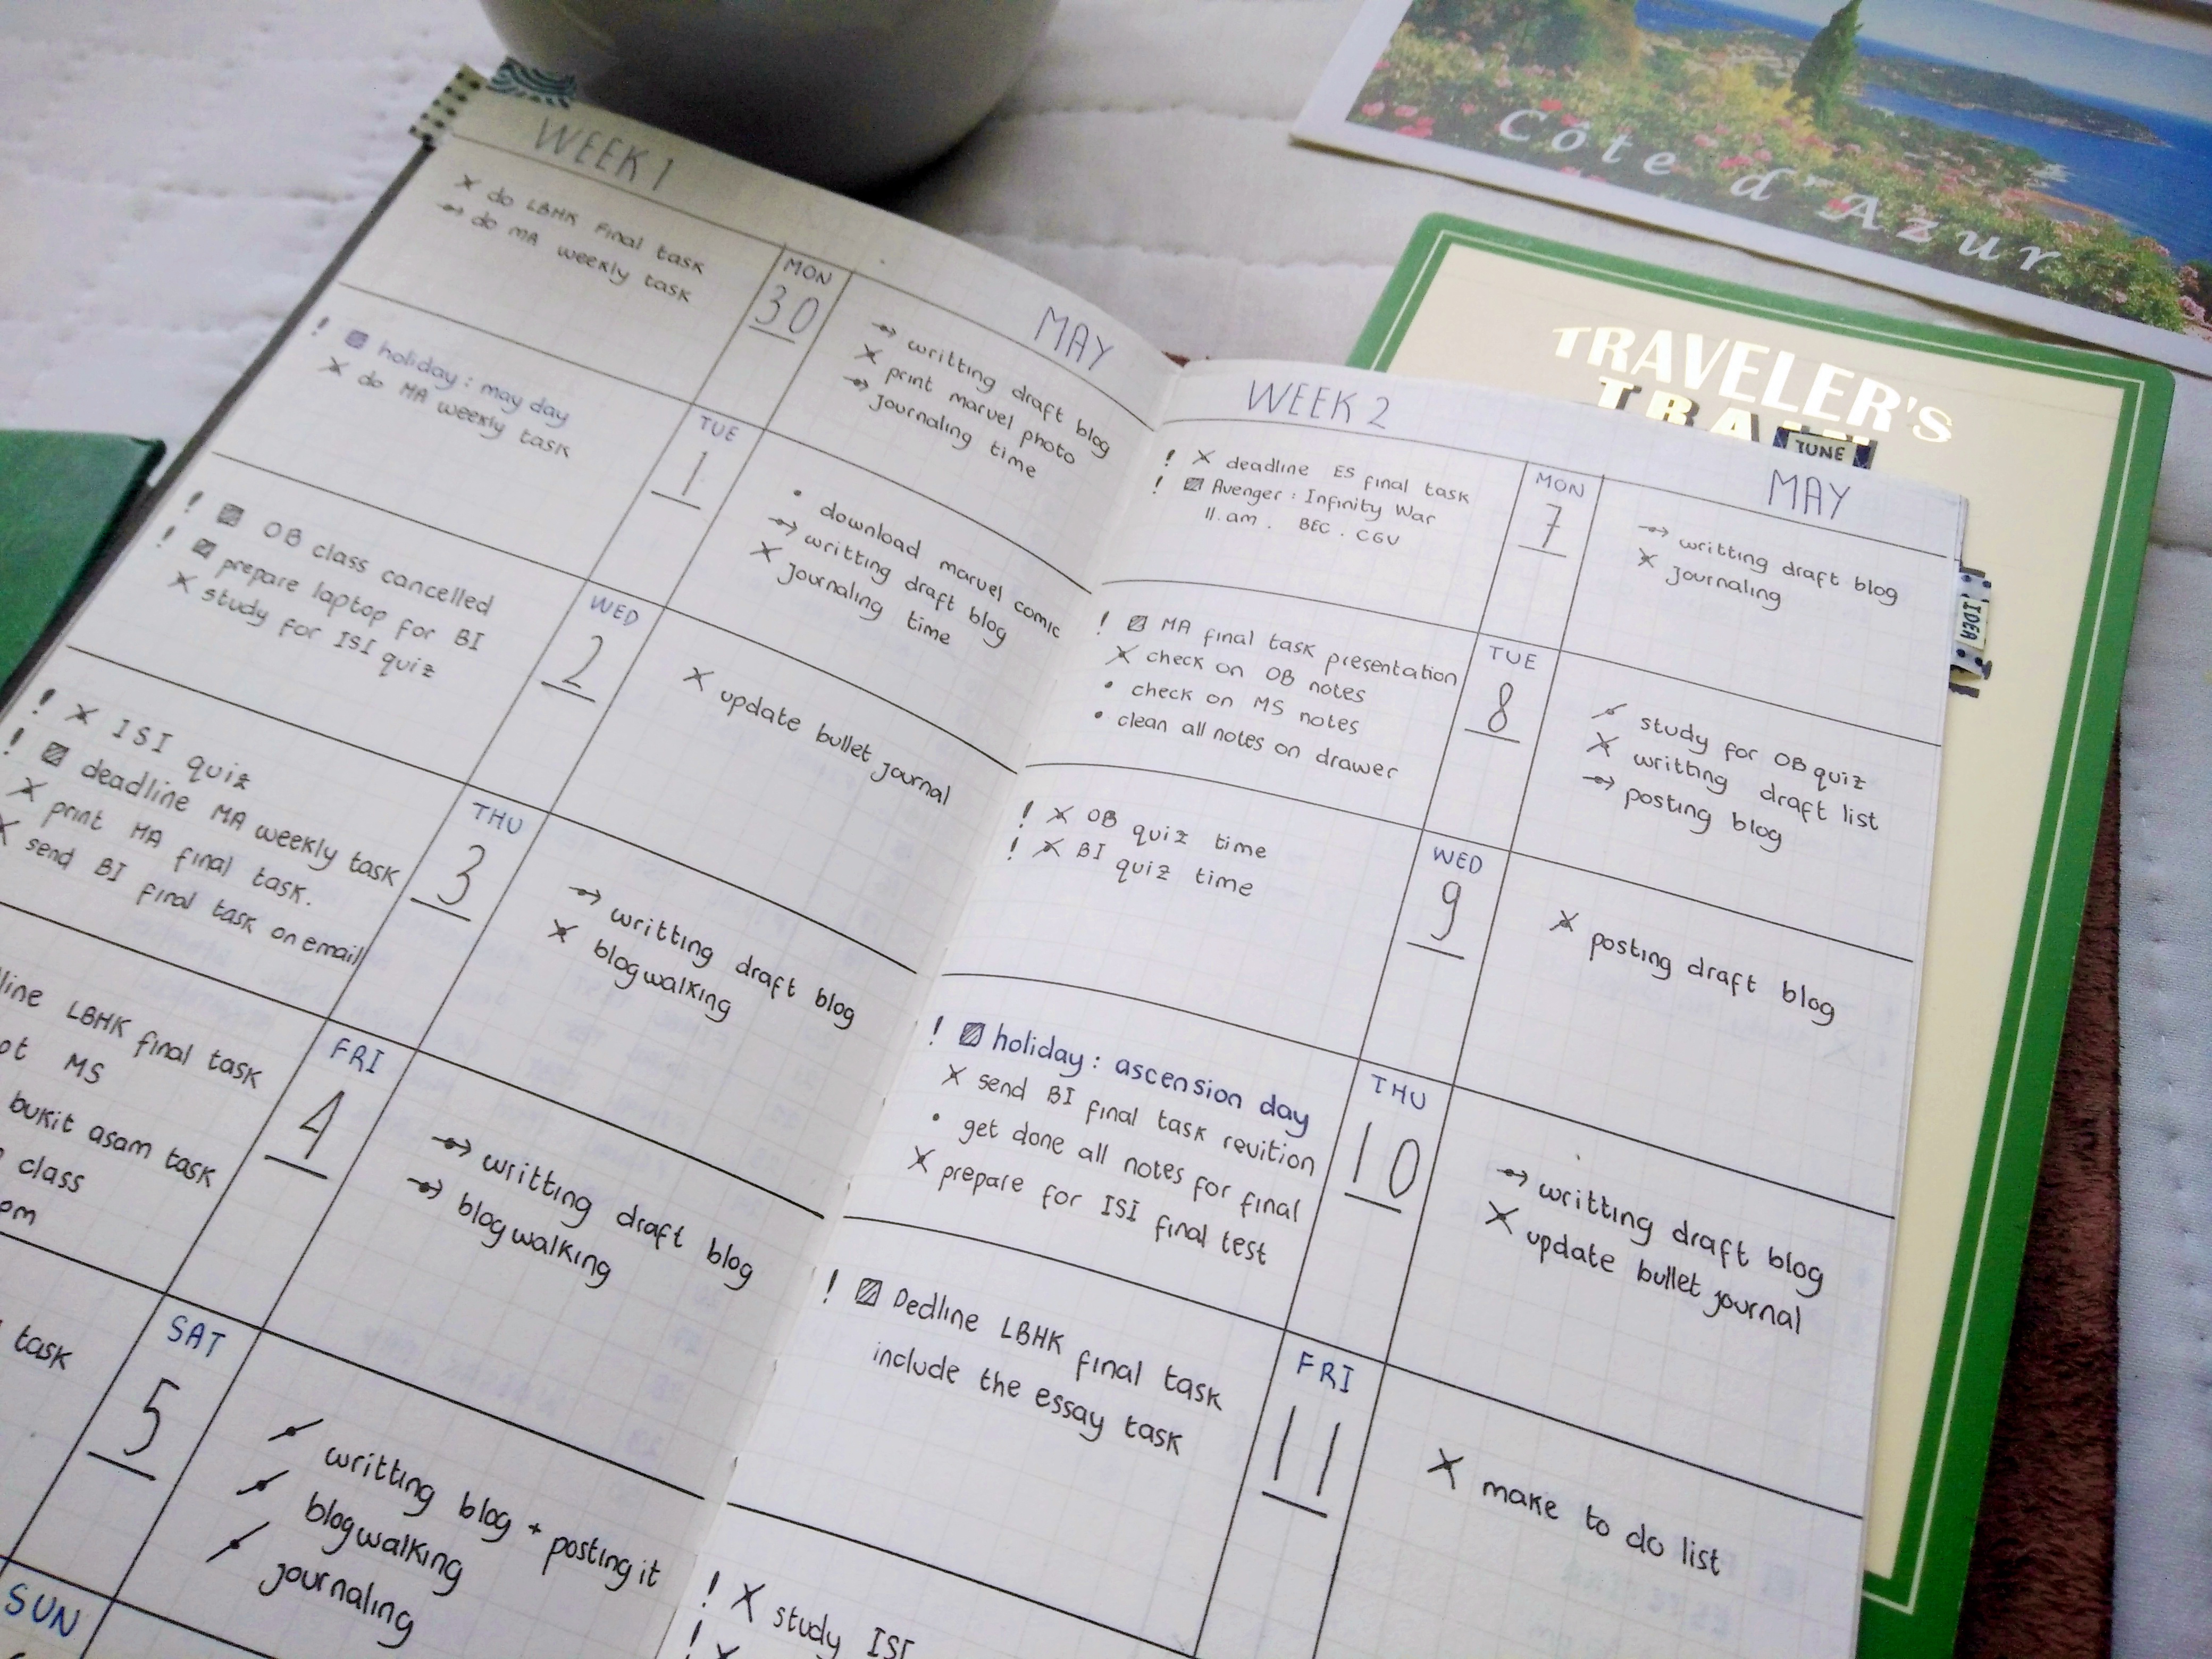 WEEK 1
MAY
do LBHK final task
do MA weekly task
MON
30
writting draft blog
print marvel photo
journaling time
! holiday : may day
do MA weekly task
TUE
1
download marvel comic
writting draft blog
journaling time
! OB class cancelled
! prepare laptop for BI
study for ISI quiz
WED
2
update bullet journal
! ISI quiz
! deadline MA weekly task
print MA final task.
send BI final task on email
THU
3
writting draft blog
blogwalking
LBHK final task
MS
bukit asam task
class
FRI
4
writting draft blog
blogwalking
task
SAT
5
writting blog + posting it
blogwalking
journaling
SUN
WEEK 2
MAY
! deadline ES final task
! Avenger : Infinity War
11.am . BEC . CGV
MON
7
writting draft blog
journaling
! MA final task presentation
check on OB notes
check on MS notes
clean all notes on drawer
TUE
8
study for OB quiz
writting draft list
posting blog
! OB quiz time
! BI quiz time
WED
9
posting draft blog
! holiday : ascension day
send BI final task revition
get done all notes for final
prepare for ISI final test
THU
10
writting draft blog
update bullet journal
! Dedline LBHK final task
include the essay task
FRI
11
make to do list
! study ISI
!
Côte d'Azur
TRAVELER'S
JUNE
IDEA